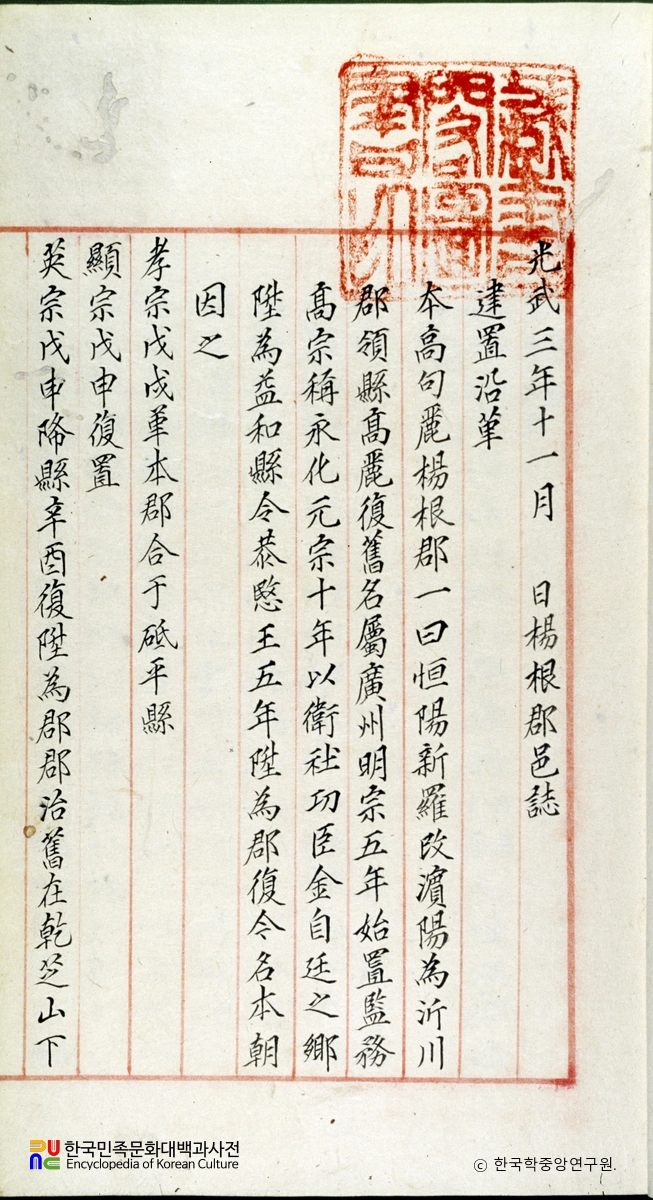 光武三年十一月 日楊根郡邑誌
建置沿革
本高句麗楊根郡一曰恒陽新羅改濱陽為沂川
郡領縣高麗復舊名屬廣州明宗五年始置監務
高宗稱永化元宗十年以衛社功臣金自廷之鄉
陞為益和縣令恭愍王五年陞為郡復令名本朝
因之
孝宗戊戌革本郡合于砥平縣
顯宗戊申復置
英宗戊申降縣辛酉復陞為郡郡治舊在乾芝山下
한국민족문화대백과사전
Encyclopedia of Korean Culture
© 한국학중앙연구원.